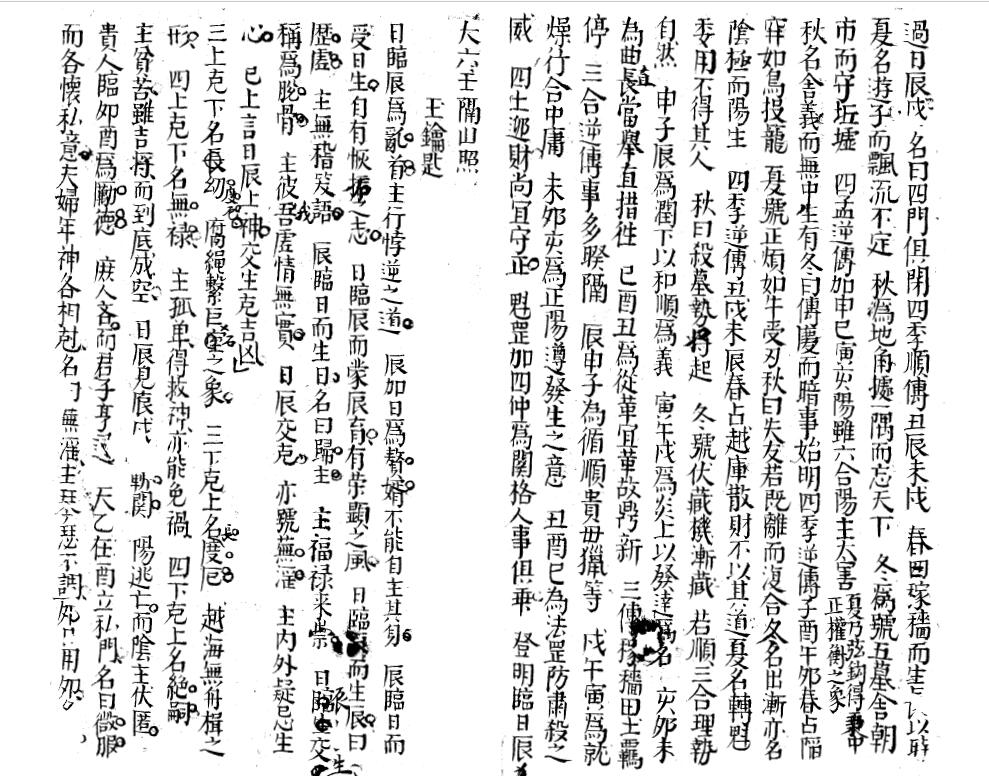 過日辰戌 名曰四門俱閉四季順傳丑辰未戌 春曰稼穡而生
夏名遊子而飄流不定 秋為地角據一隅而忘天下 冬為號五墓舍朝
市而守坵墟 四孟逆傳加申巳寅亥陽雖六合陽主大害 夏乃弦鈎得秉中正權衡之象
秋名舍義而無中生有冬曰傳慶而暗事始明四季逆傳子酉午夘春占陷
穽如鳥投籠 夏號正煩如牛受刃秋曰失友若既離而復合冬名出漸亦名
陰極而陽生 四季逆傳丑戌未辰春占越庫散財不以其道夏名轉魁
委用不得其人 秋曰殺墓勢將起 冬號伏藏機漸藏 若順三合理勢
自然 申子辰為潤下以和順為義 寅午戌為炎上以發達為名 亥夘未
為曲直長當舉直措徃 巳酉丑為從革宜革故鼎新 三傳稼穡田土羈
停 三合逆傳事多睽隔 辰申子為循順貴毋獵等 戌午寅為就
燥行合中庸 未夘亥為正陽遵發生之意 丑酉巳為法罡防肅殺之
威 四土遯財尚宜守正 魁罡加四仲為關格人事俱乖 登明臨日辰
大六壬開山照
玉鑰匙
日臨辰為亂首主行悖逆之道 辰加日為贅婿不能自主其身 辰臨日而
受日生自有恢振之志 日臨辰而蒙辰育有榮顯之風 日臨辰而生辰曰
歷虛 主無稽笑語 辰臨日而生日名曰歸主 主福祿来崇 日臨生交
稱為脫骨 主彼我吾虛情無實 日辰交克 亦號蕪淫 主內外疑忌生
心 已上言日辰上神交生克吉凶
三上克下名長幼 腐繩繫巨室之象 三下克上名度厄 越海無舟楫之
形 四上克下名無禄 主孤单得救神亦能免禍 四下克上名絕嗣
主貧苦雖吉將而到底成空 日辰見辰戌 勅關 陽逃亡而陰主伏匿
貴人臨夘酉為勵德 庶人吝而君子亨 天乙在酉立私門名曰微服
而各懷私意夫婦年神各相尅名 蕪淫主琴瑟不調